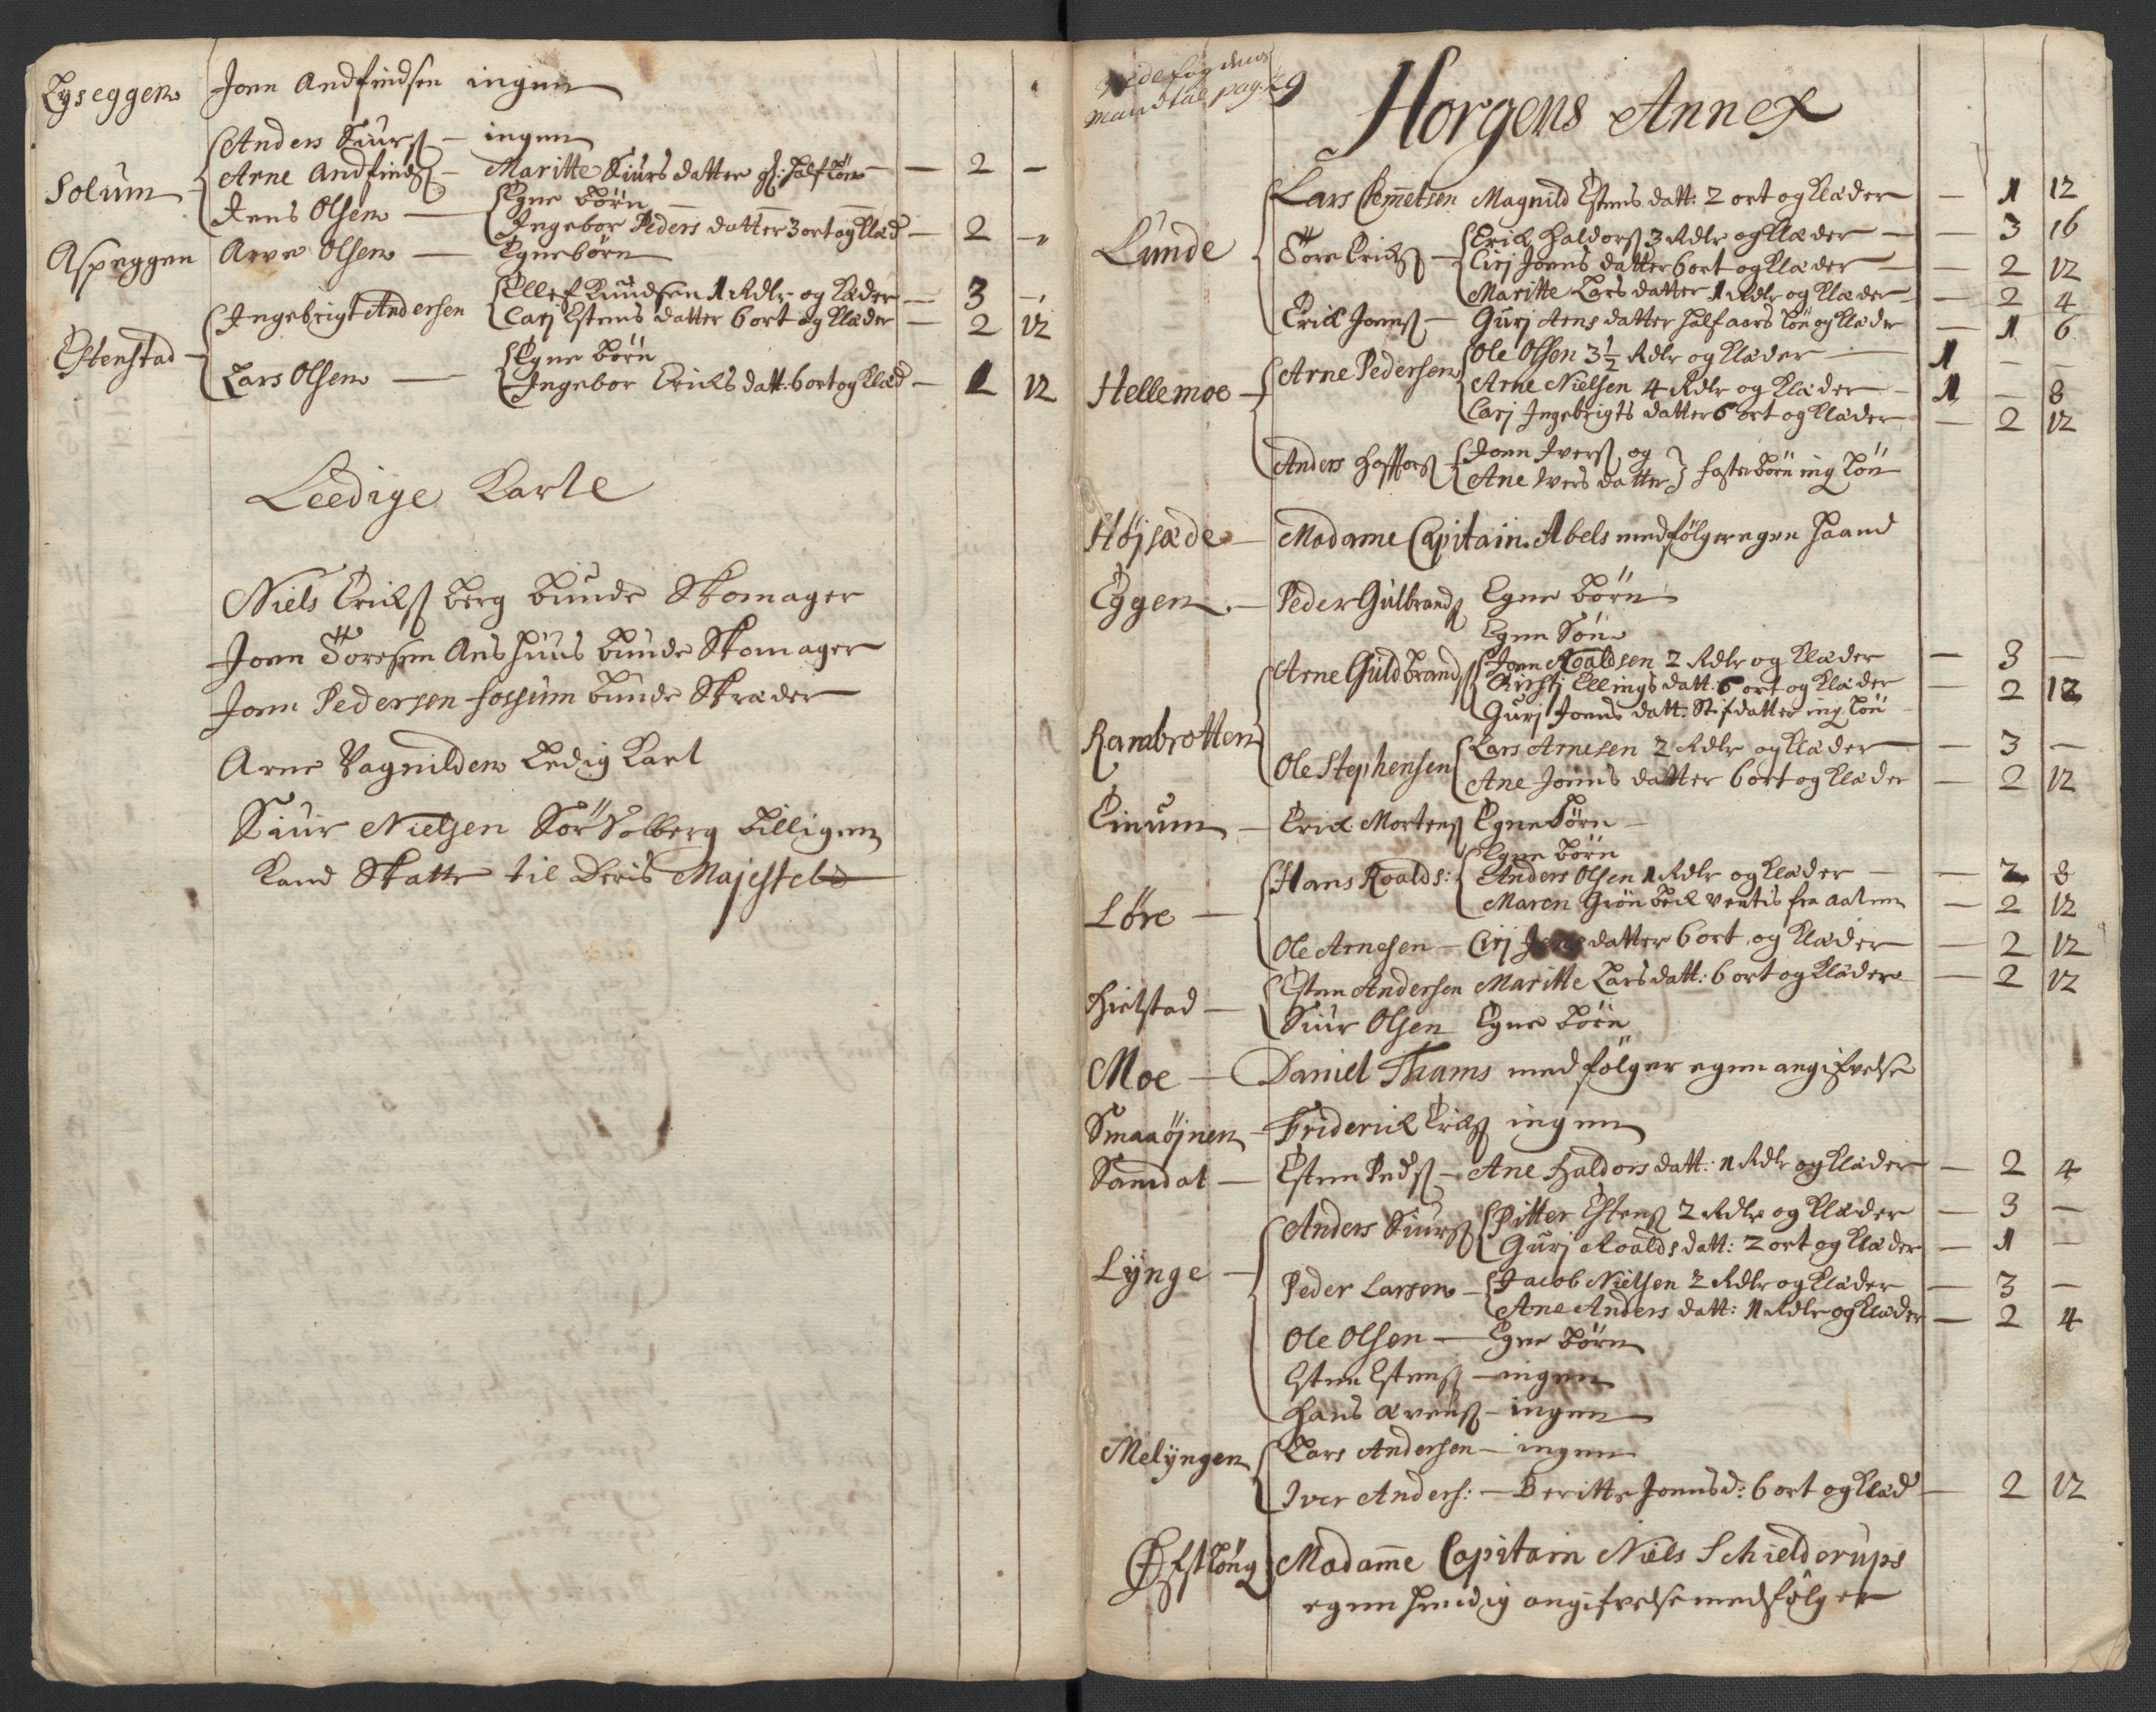 Lyseggen Jonn Andfindsen ingen
Anders Siurs — ingen
Solum — Arne Andfinds — Maritte Siurs datter half lön — 2 —
Jens Olsen — Egne börn
Ingebor Peders datter 3 ort og Klæd — 2 —
Aspeggen Arne Olsen — Egne börn
Ingebrigt Andersen Ellef Knudsen 1 Rdlr og Klæder — 3 —
Carj Estens datter 6 ort og Klæder — 2 12
Estenstad — Lars Olsen — Egne börn
Ingebor Ericks datt: 6 ort og Klæd — 1 12
Leedige Karle
Niels Ericks berg bunde Skomager
Jonn Toresen Aushuus bunde Skomager
Jonn Pedersen fossum bunde Skræder
Arne Vagnilden Ledig Karl
Siur Nielsen Sör Solberg billigen
Kand Skatte til Deris Majestet
mandtal pag: 29
Horgens Annex
Lars Clemetsen Magnild Estens datt: 2 ort og Klæder — 1 12
Lunde Tore Ericks — Erick Haldors 3 Rdlr og Klæder — 3 16
Cirj Jonns datter 6 ort og Klæder — 2 12
Maritte Lars datter 1 Rdlr og Klæder — 2 4
Erick Jonns — Gurj Arns datter half aars lön og Klæder — 1 6
Hellemoe — Arne Pedersen Ole Olsen 3½ Rdlr og Klæder — 1 — —
Arne Nielsen 4 Rdlr og Klæder — 1 — 8
Carj Ingebrigts datter 6 ort og Klæder — 2 12
Anders Joen Ivers og
Ane Ivers datter fosterbörn ing lön
Höjsæde — Madame Capitain Abels medfölger egen haand
Eggen — Peder Gulbrands Egne börn
Egen Sön
Arne Guldbrands Jonn Roaldsen 2 Rdlr og Klæder — 3 —
Kirstj Ellings datt: 6 ort og Klæder — 2 12
Gurj Jonns datt: Stifdatter ing lön
Rambrotten Ole Stephensen Lars Arnesen 2 Rdlr og Klæder — 3 —
Ane Jonns datter 6 ort og Klæder — 2 12
Einum — Erick Mortens Egne börn —
Egne börn
Hans Roalds: Anders Olsen 1 Rdlr og Klæder — 2 8
Löre — Maren Grön beck ventis fra Aalen — 2 12
Ole Arnesen — Cirj datter 6 ort og Klæder — 2 12
Hielstad — Esten Andersen Maritte Lars datt: 6 ort og Klæder — 2 12
Siur Olsen Egne börn
Moe — Daniel Thams med fölger egen angifvelse
Smaaöjnen — Friderick Ericks ingen
Samdal — Esten Peds — Ane Haldors datt: 1 Rdlr og Klæder — 2 4
Anders Siurs Pitter Estens 2 Rdlr og Klæder — 3 —
Gurj Roalds datt: 2 ort og Klæder — 1 —
Lynge — Peder Larsen — Jacob Nielsen 2 Rdlr og Klæder — 3 —
Ane Anders datt: 1 Rdlr og Klæder — 2 4
Ole Olsen — Egne börn
Esten Estens — ingen
Hans — ingen
Melyngen Lars Andersen — ingen
Iver Anders: — Beritte Jonns d: 6 ort og Klæd — 2 12
Madame Capitain Niels Schielderups
egen hendig angifvelse medfölger